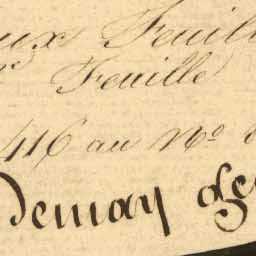 ux Feuill
Feuille
416 au No
Demay